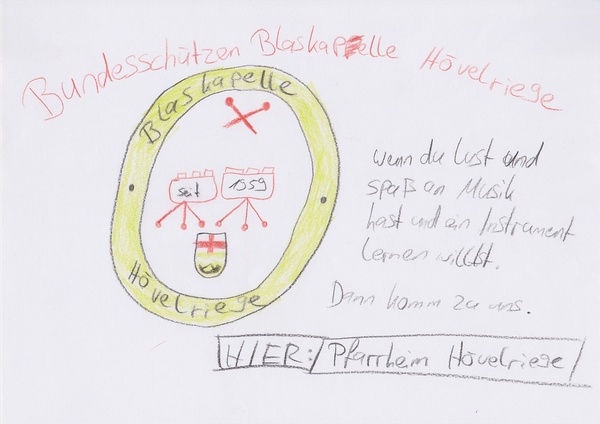 Bundesschützen Blaskapelle Hövelriege
Blaskapelle
seit 1959
Hövelriege
wenn du lust und
spaß an Musik
hast und ein Instrument
lernen willst.
Dann komm zu uns.
HIER: Pfarrheim Hövelriege